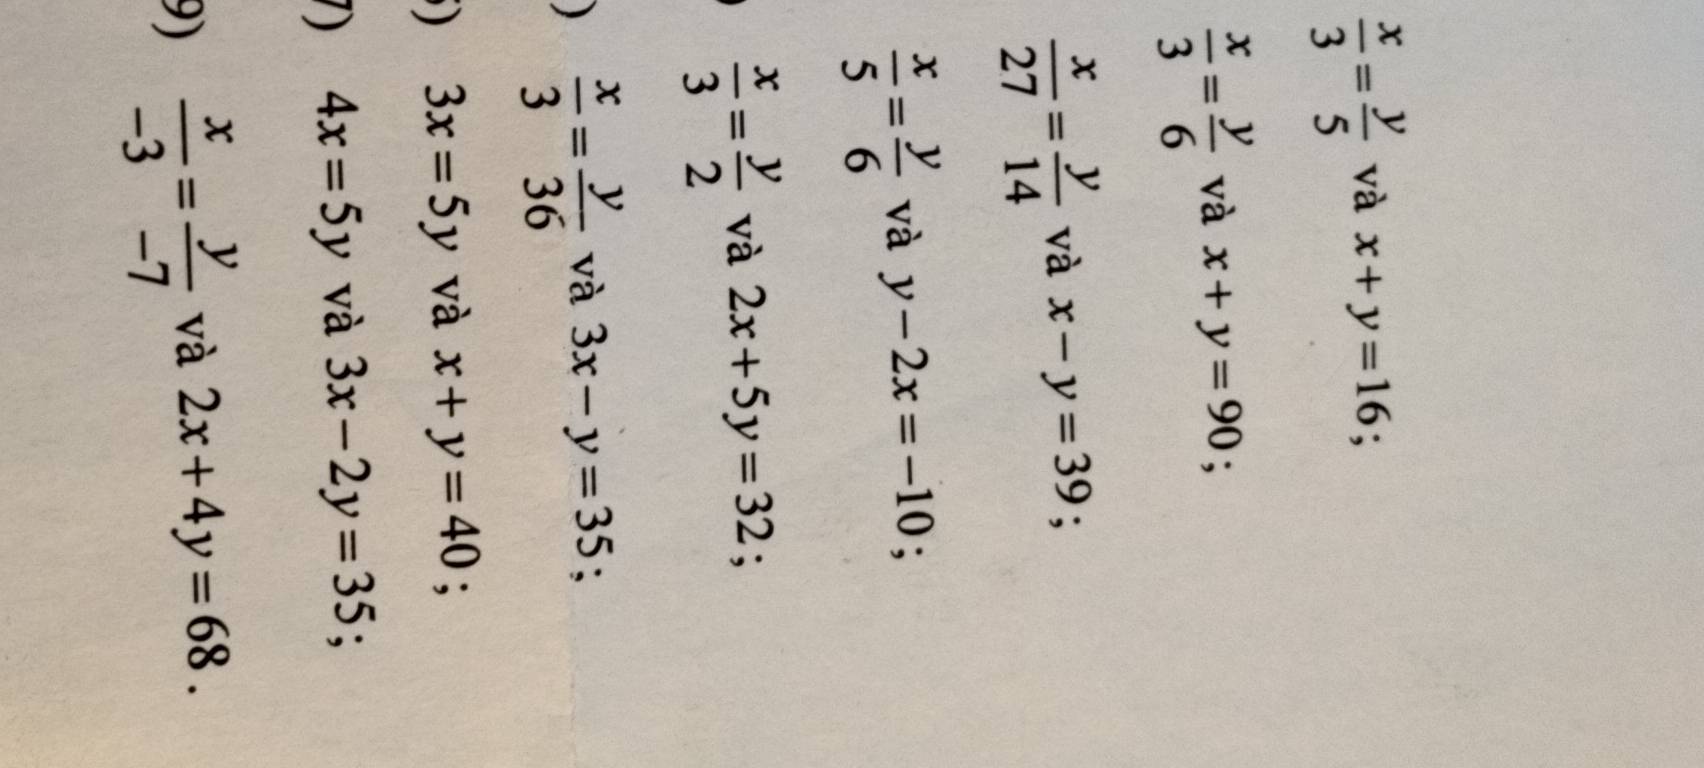 x/3 = y/5 và x + y = 16;
x/3 = y/6 và x + y = 90;
x/27 = y/14 và x − y = 39;
x/5 = y/6 và y − 2x = −10;
) x/3 = y/2 và 2x + 5y = 32;
) x/3 = y/36 và 3x − y = 35;
) 3x = 5y và x + y = 40;
7) 4x = 5y và 3x − 2y = 35;
9) x/−3 = y/−7 và 2x + 4y = 68.